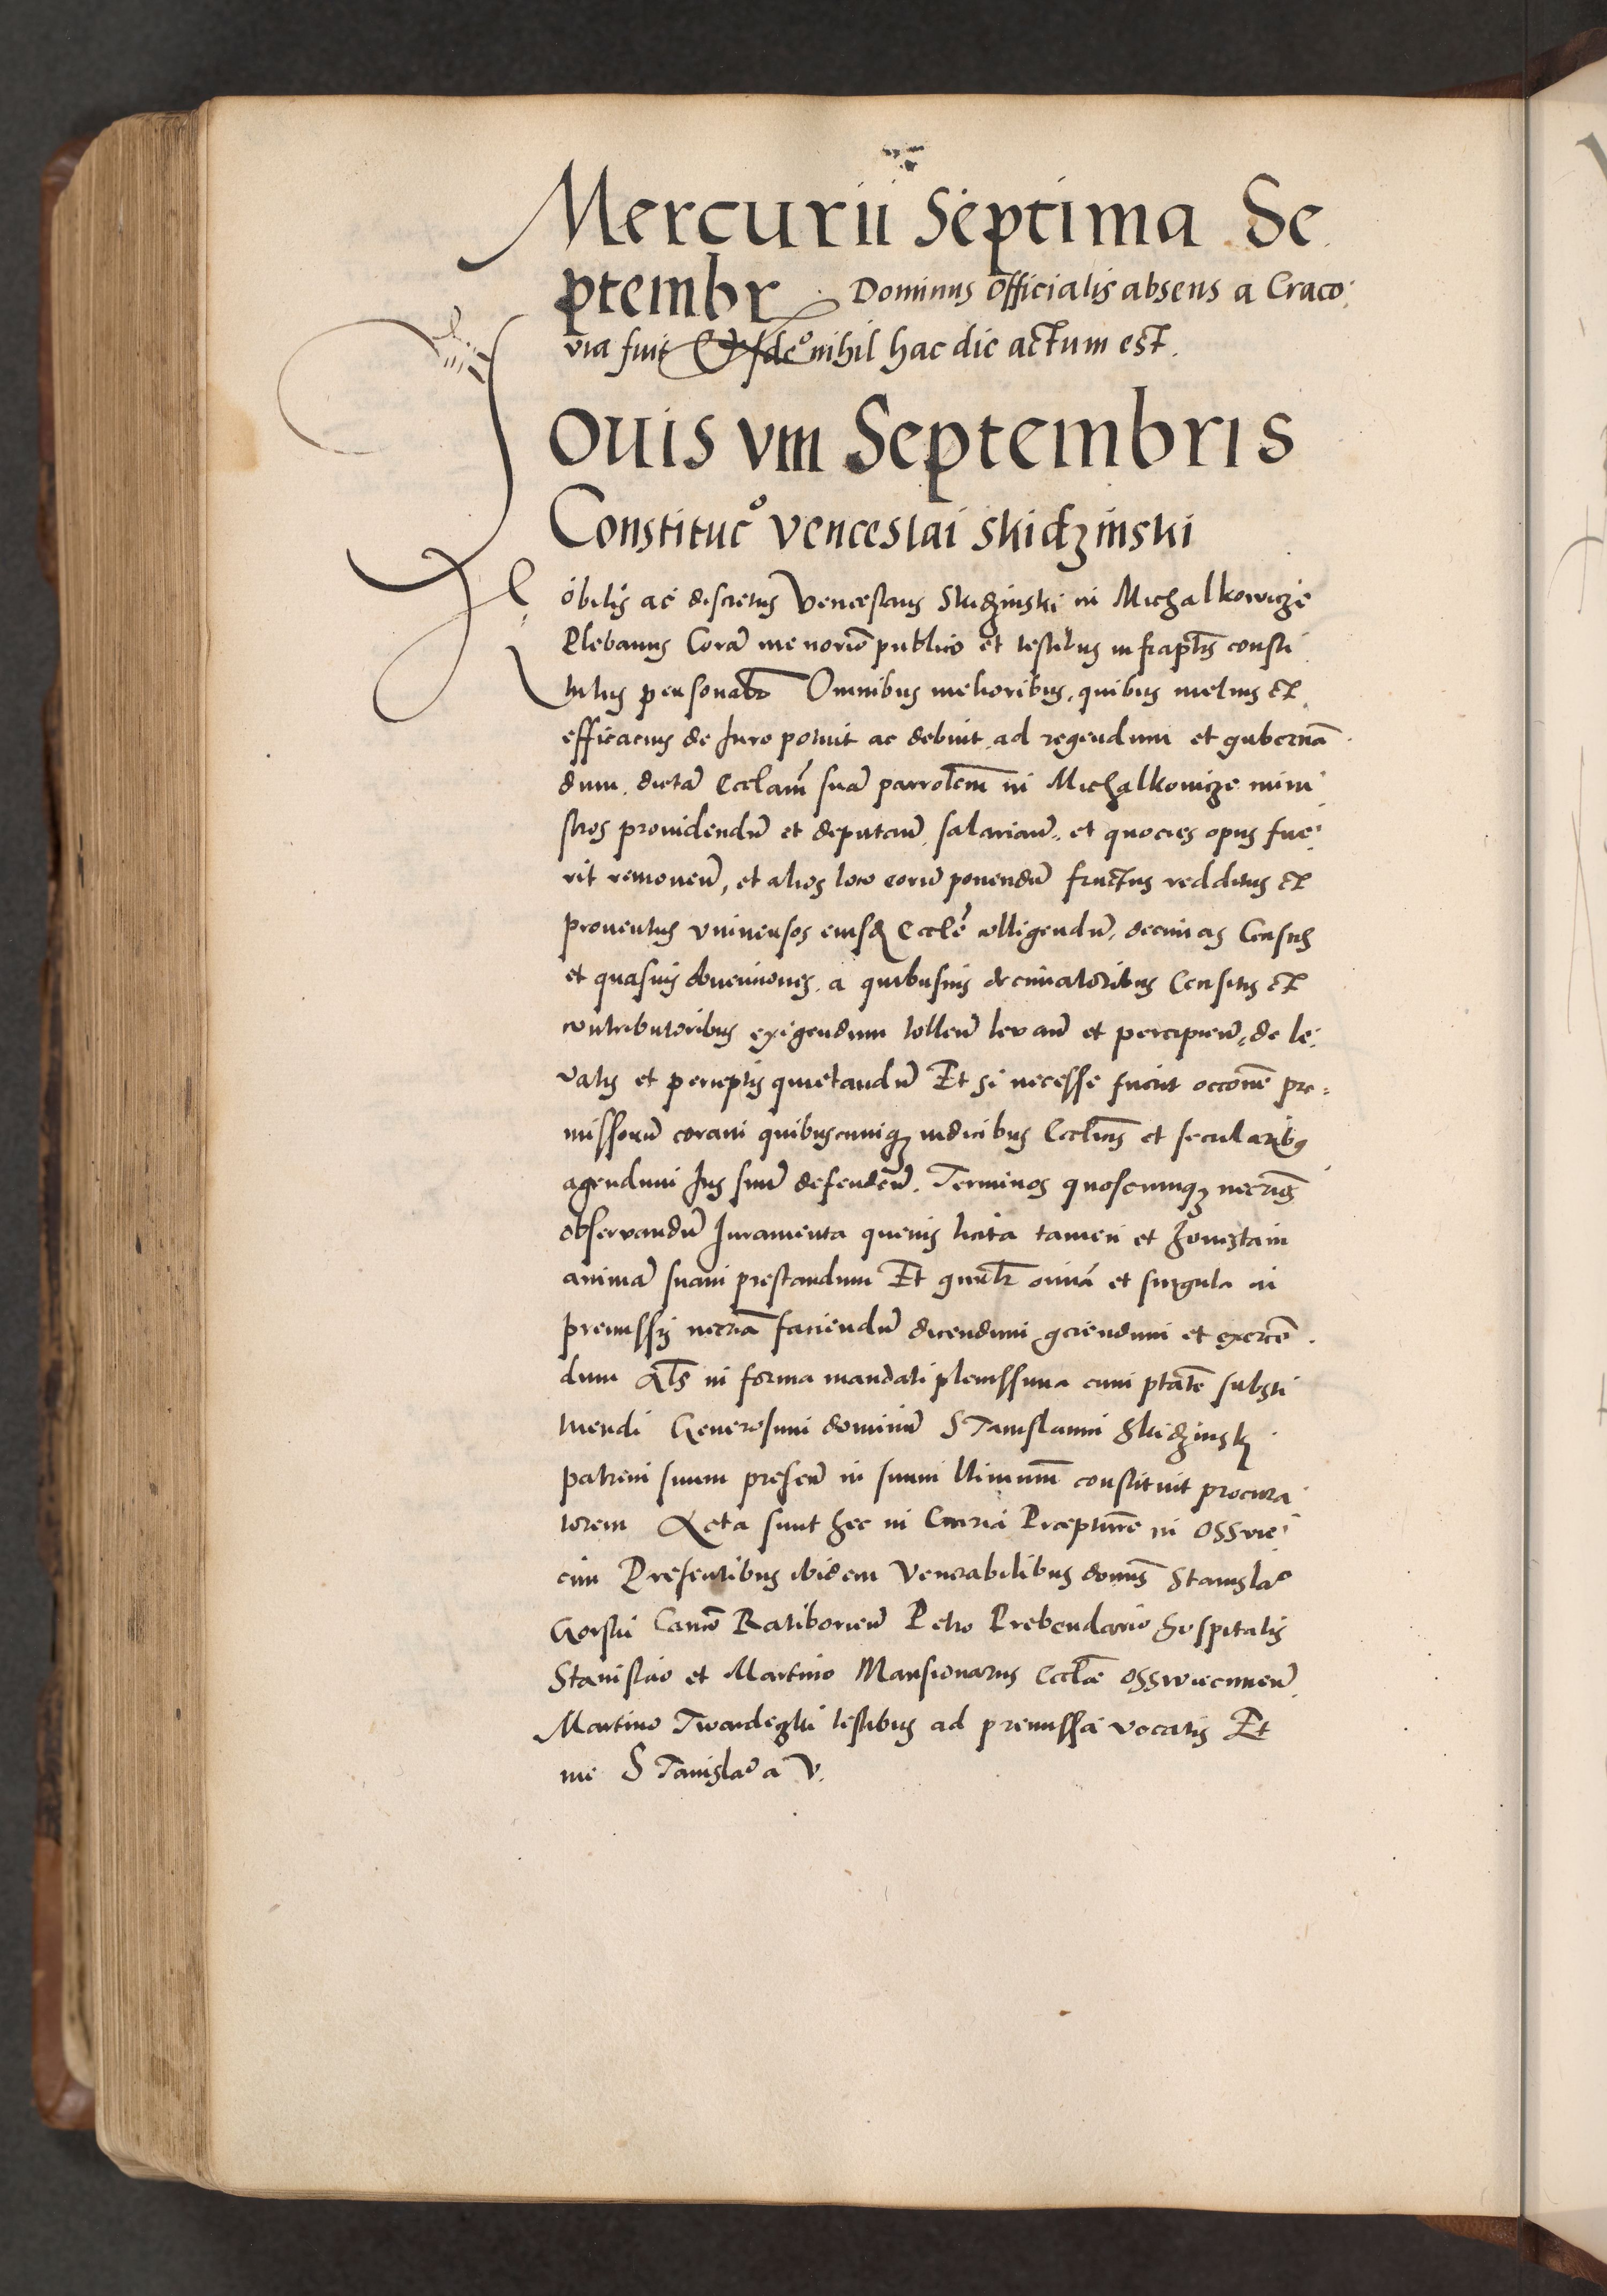 Mercurii Septima Se
ptembr Dominus Officialis absens a Craco
via fuit Et Ideo nihil hac die actum est.
Jouis vm Septembris
Constituco Venceslai Skidzinski
Nobilis ac discretus Venceslaus Skidzinski in Michalkowicze
Plebanus Corā me norio publico et testibus infraptis consti
tutus personalr Omnibus melioribus, quibus melius et
efficacius de Iure potuit ac debuit ad regendum et gubernā
dum dictā Eccłam suā parrolem in Michalkowicze mini
stros prouidendū et deputanū, salarianū, et quocies opus fue
rit remouenū, et alios loco eorū ponendū fructus redditus et
prouentus vniuersos eiusd Ecclē colligendū, decimas Census
et quasuis obuenciones a quibusuis decimatoribus Censitis et
contributoribus exigendum tollenū levanū et percipienū, de le
vatis et perceptis quietandū Et si necesse fuerit occone pre
missorū coram quibuscumq iudicibus Ecclicis et secularibꝫ
agendum Ius suū defendenū. Terminos quoscumqꝫ necrios
obseruandū Iuramenta queuis licita tamen et honesta in
animā suam prestandum Et gnalr omia et singula in
premissis necria faciendū dicendum gerendum et exercē
dum Als in forma mandati plenissima cum ptate substi
tuendi Generosum dominū Stanislaum Skidzinsk
patrem suum presenū in suum ltimum constituit procura
torem Acta sunt hec in Curia Prepture in Osswie
cim Presentibus ibidem Venerabilibus domis Stanislao
Gorski Cano Ratiborienū Petro Prebendario hospitalis
Stanislao et Martino Mansionarus Eccłæ Osswiecimenū
Martino Twardeski testibus ad premissa vocatis Et
me Stanislao a V.